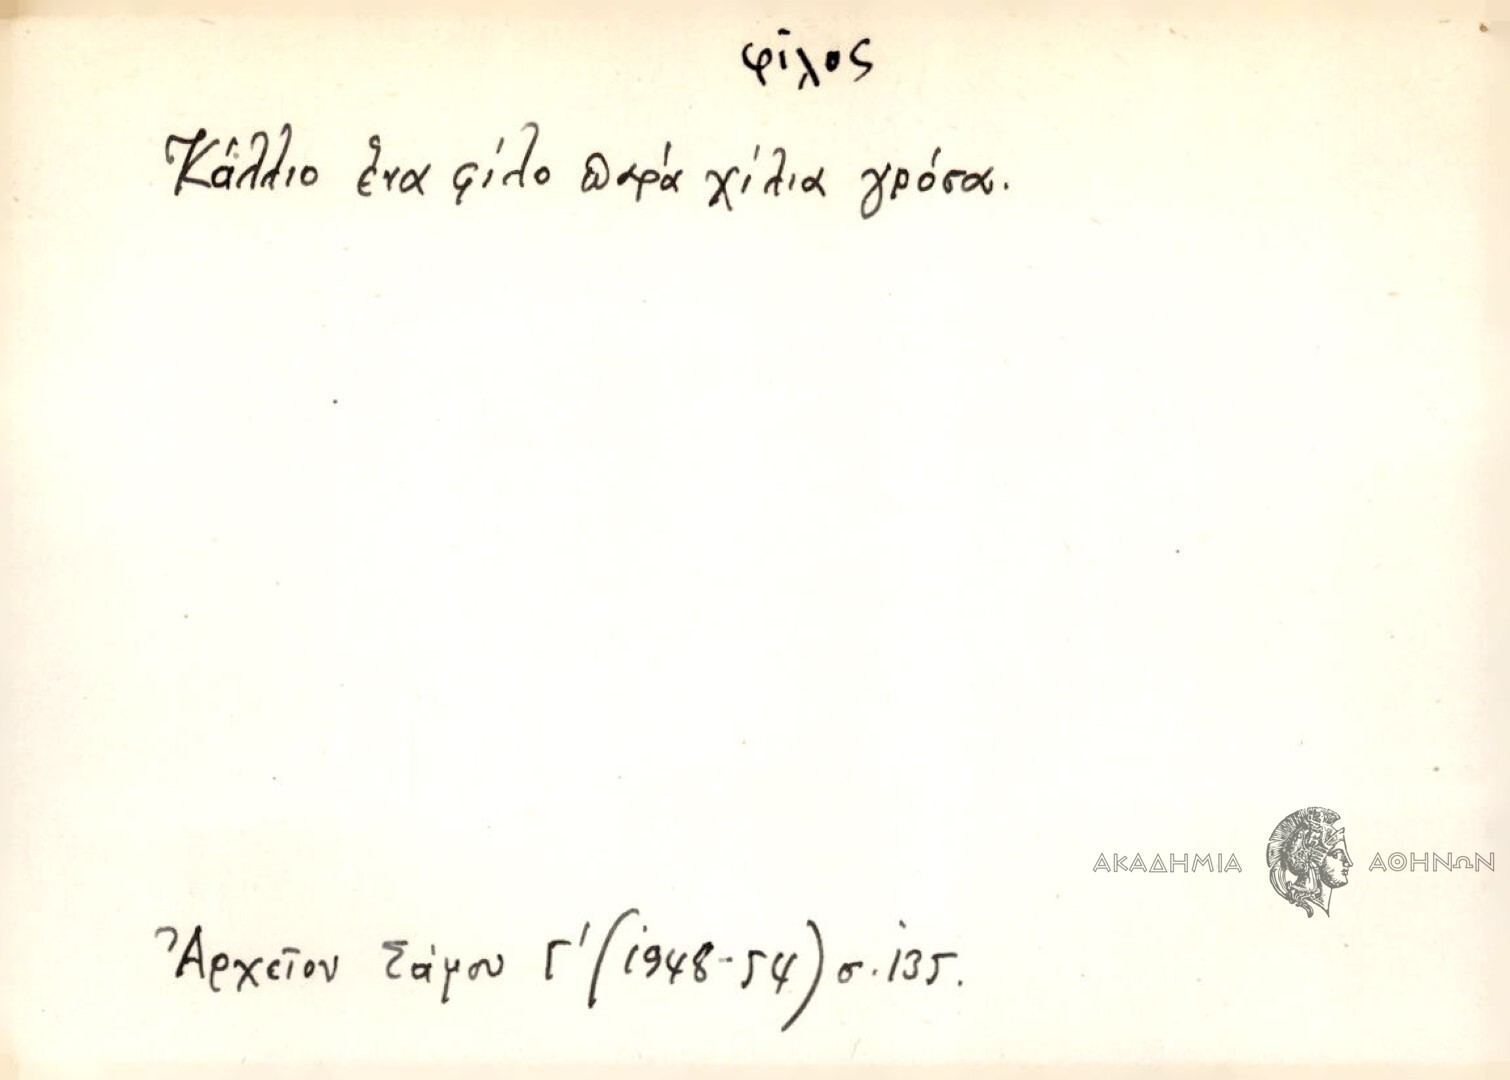 φῖλος
Κάλλιο ἕνα φίλο παρά χίλια γρόσα.
ΑΚΑΔΗΜΙΑ ΑΘΗΝΩΝ
Ἀρχεῖον Σάμου Γ' (1948-54) σ. 135.